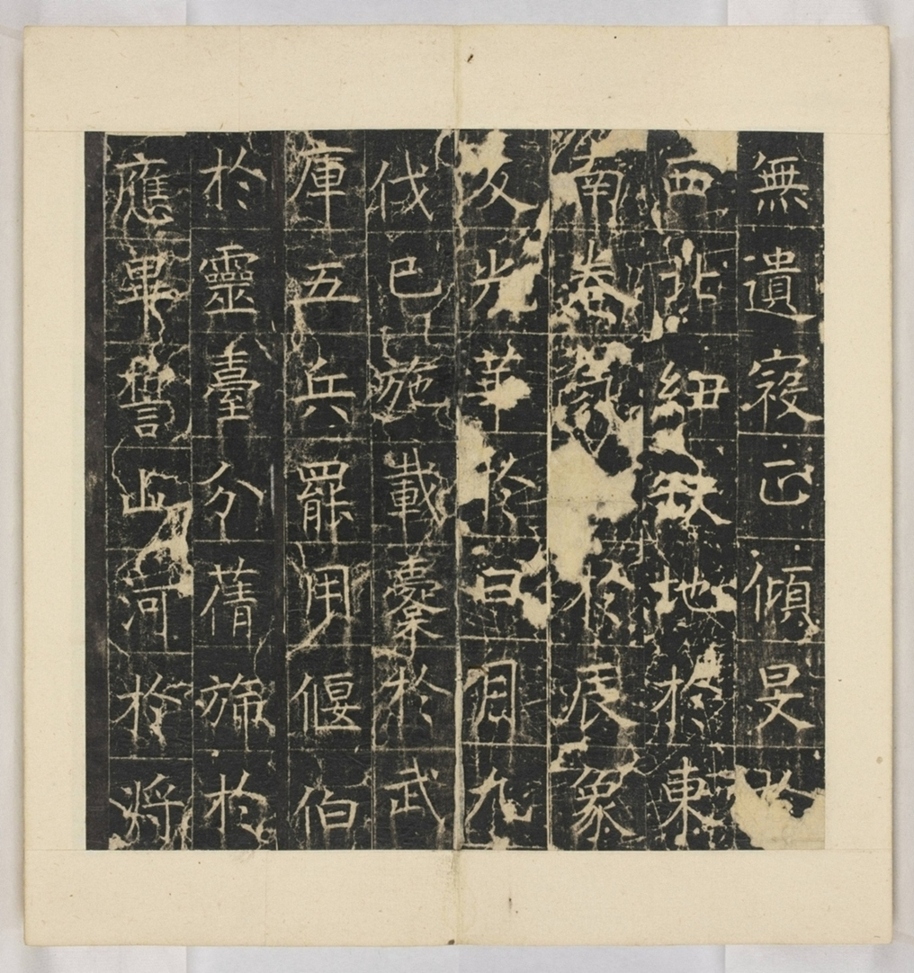 無遺寑正傾旻於
西北紐缺地於東
南卷氛於辰象
反光華於日月九
伐已施載櫜於武
庫五兵罷用偃伯
於靈臺分蒨旆於
應畢誓山河於將